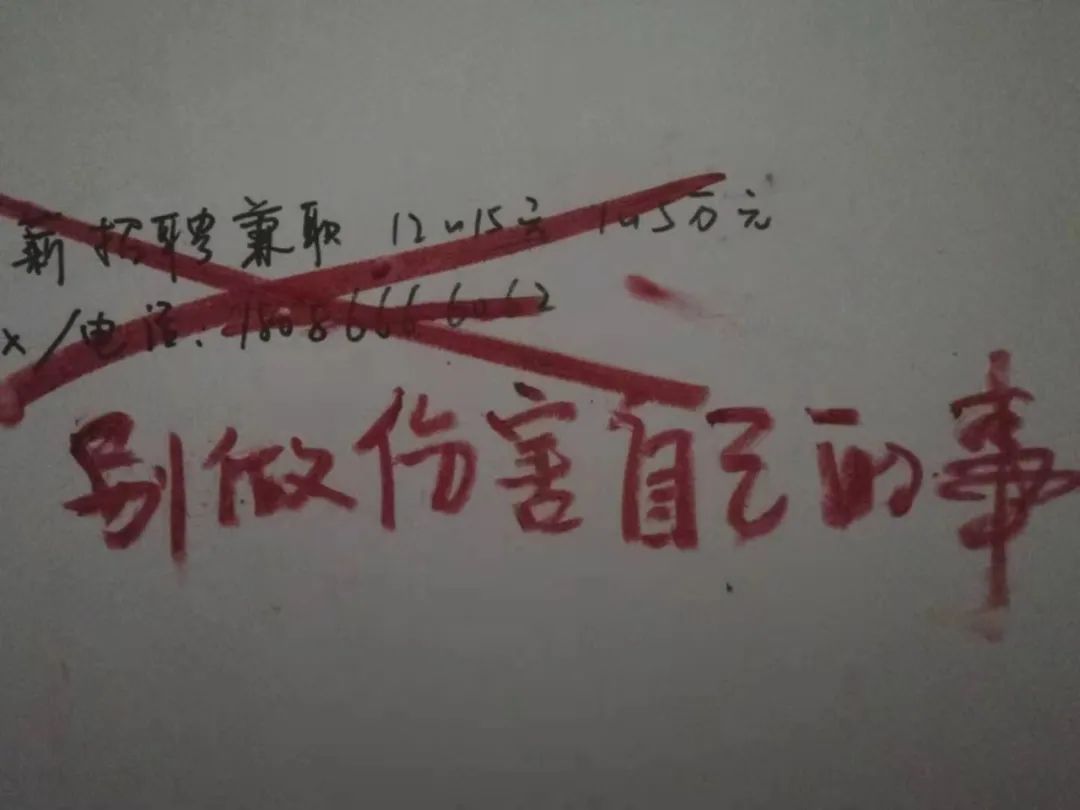 薪招聘兼职 12~15元 1~5万元
x/电话:18086666062
别做伤害自己的事